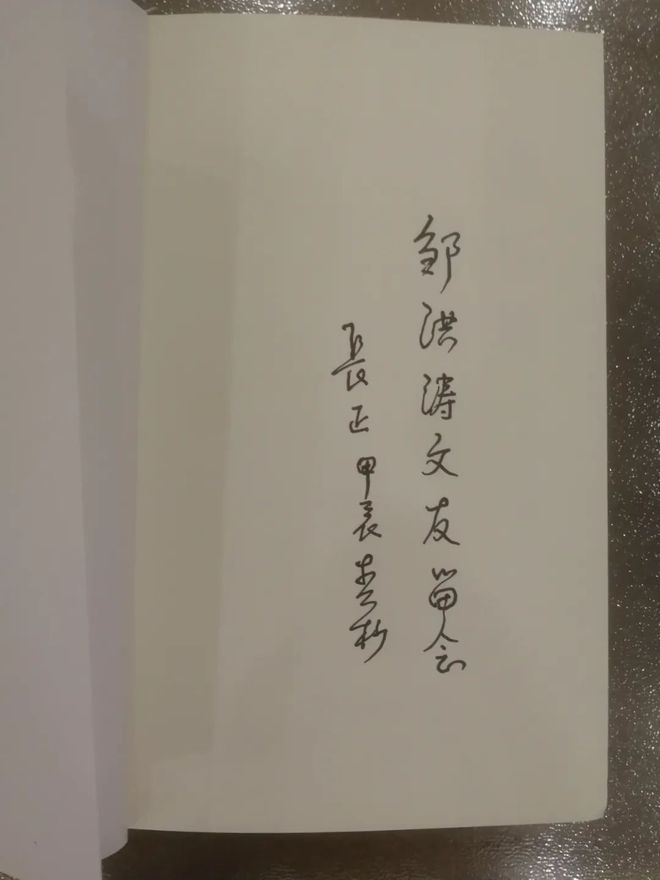 邹洪涛文友留念
長正 甲辰春杪